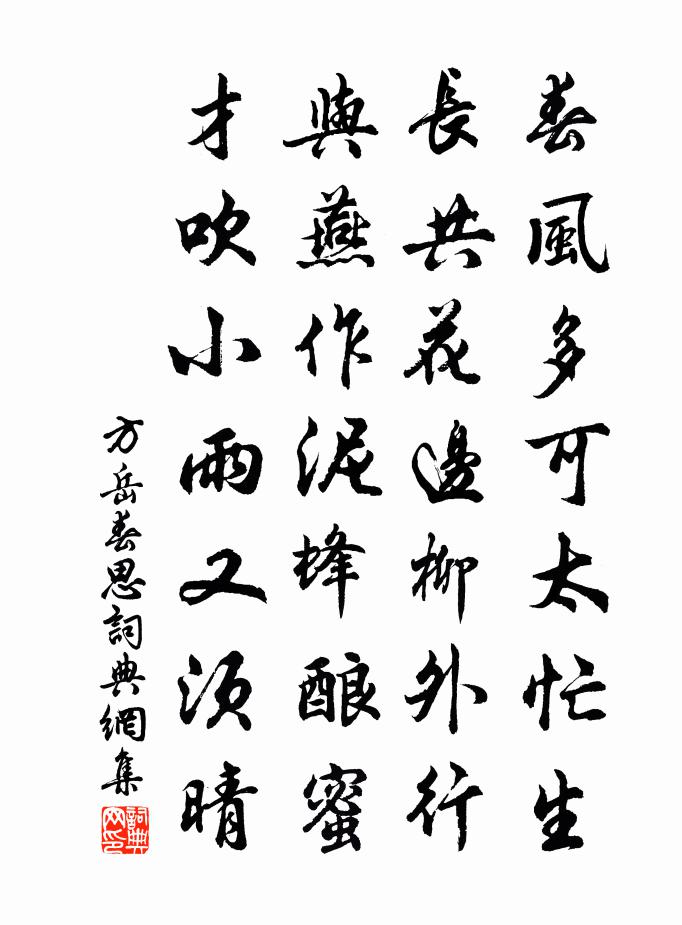 春風多可太忙生
長共花邊柳外行
與燕作泥蜂酿蜜
才吹小雨又須晴
方岳春思詞典網集
詞典網印